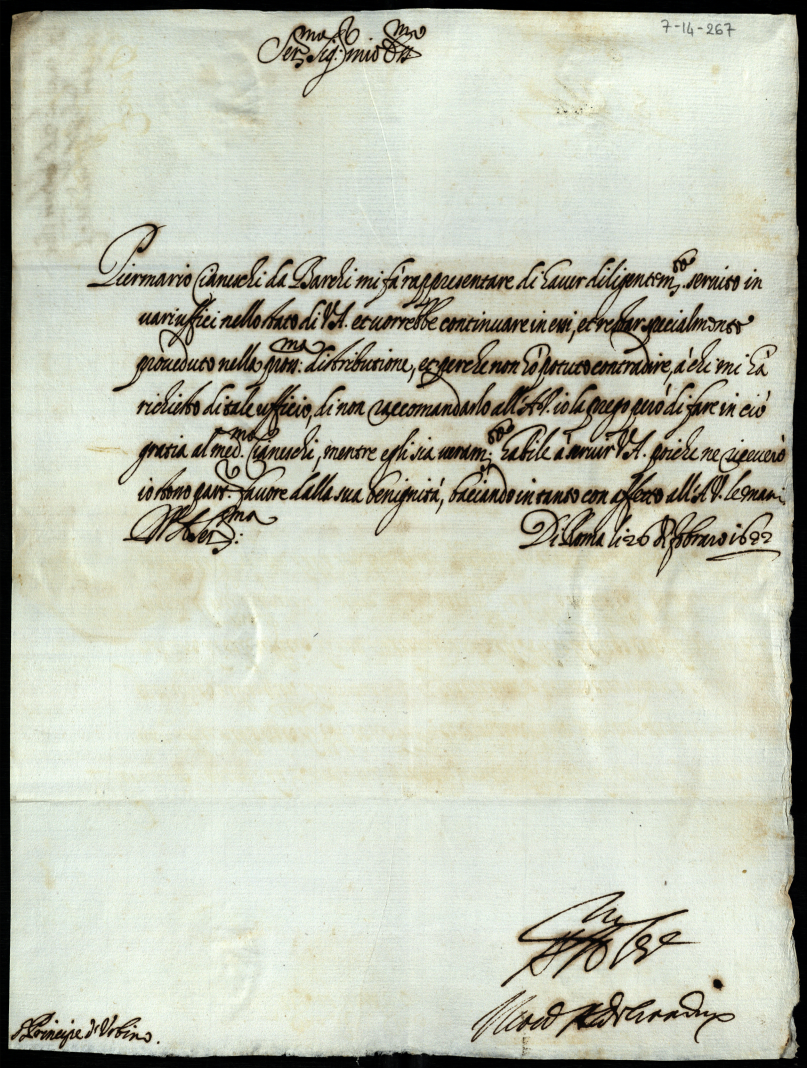 7-14-267
Ser.mo Sig.r mio
Piermario Cianeschi da Barchi mi fà rappresentare di haver diligentem.te seruito in
uarij uffici nello stato di V.A. et uorrebbe continuare in essi, et restar specialmente
proueduto nella pross.ma distributione, et perche non hò potuto contradire, à chi mi hà
richiesto di tale ufficio, di non raccomandarlo all'A.V. io la prego però di fare in ciò
gratia al med.mo Cianeschi, mentre egli sia ueram.te habile à seruir V.A. poiche ne riceuerò
io stono part.re fauore dalla sua benignità, baciando in tanto con affetto all'A.V. le mani
Di Roma li 26 di febraro 1622
Di V.A. Ser.ma
S. Principe d'Vrbino.